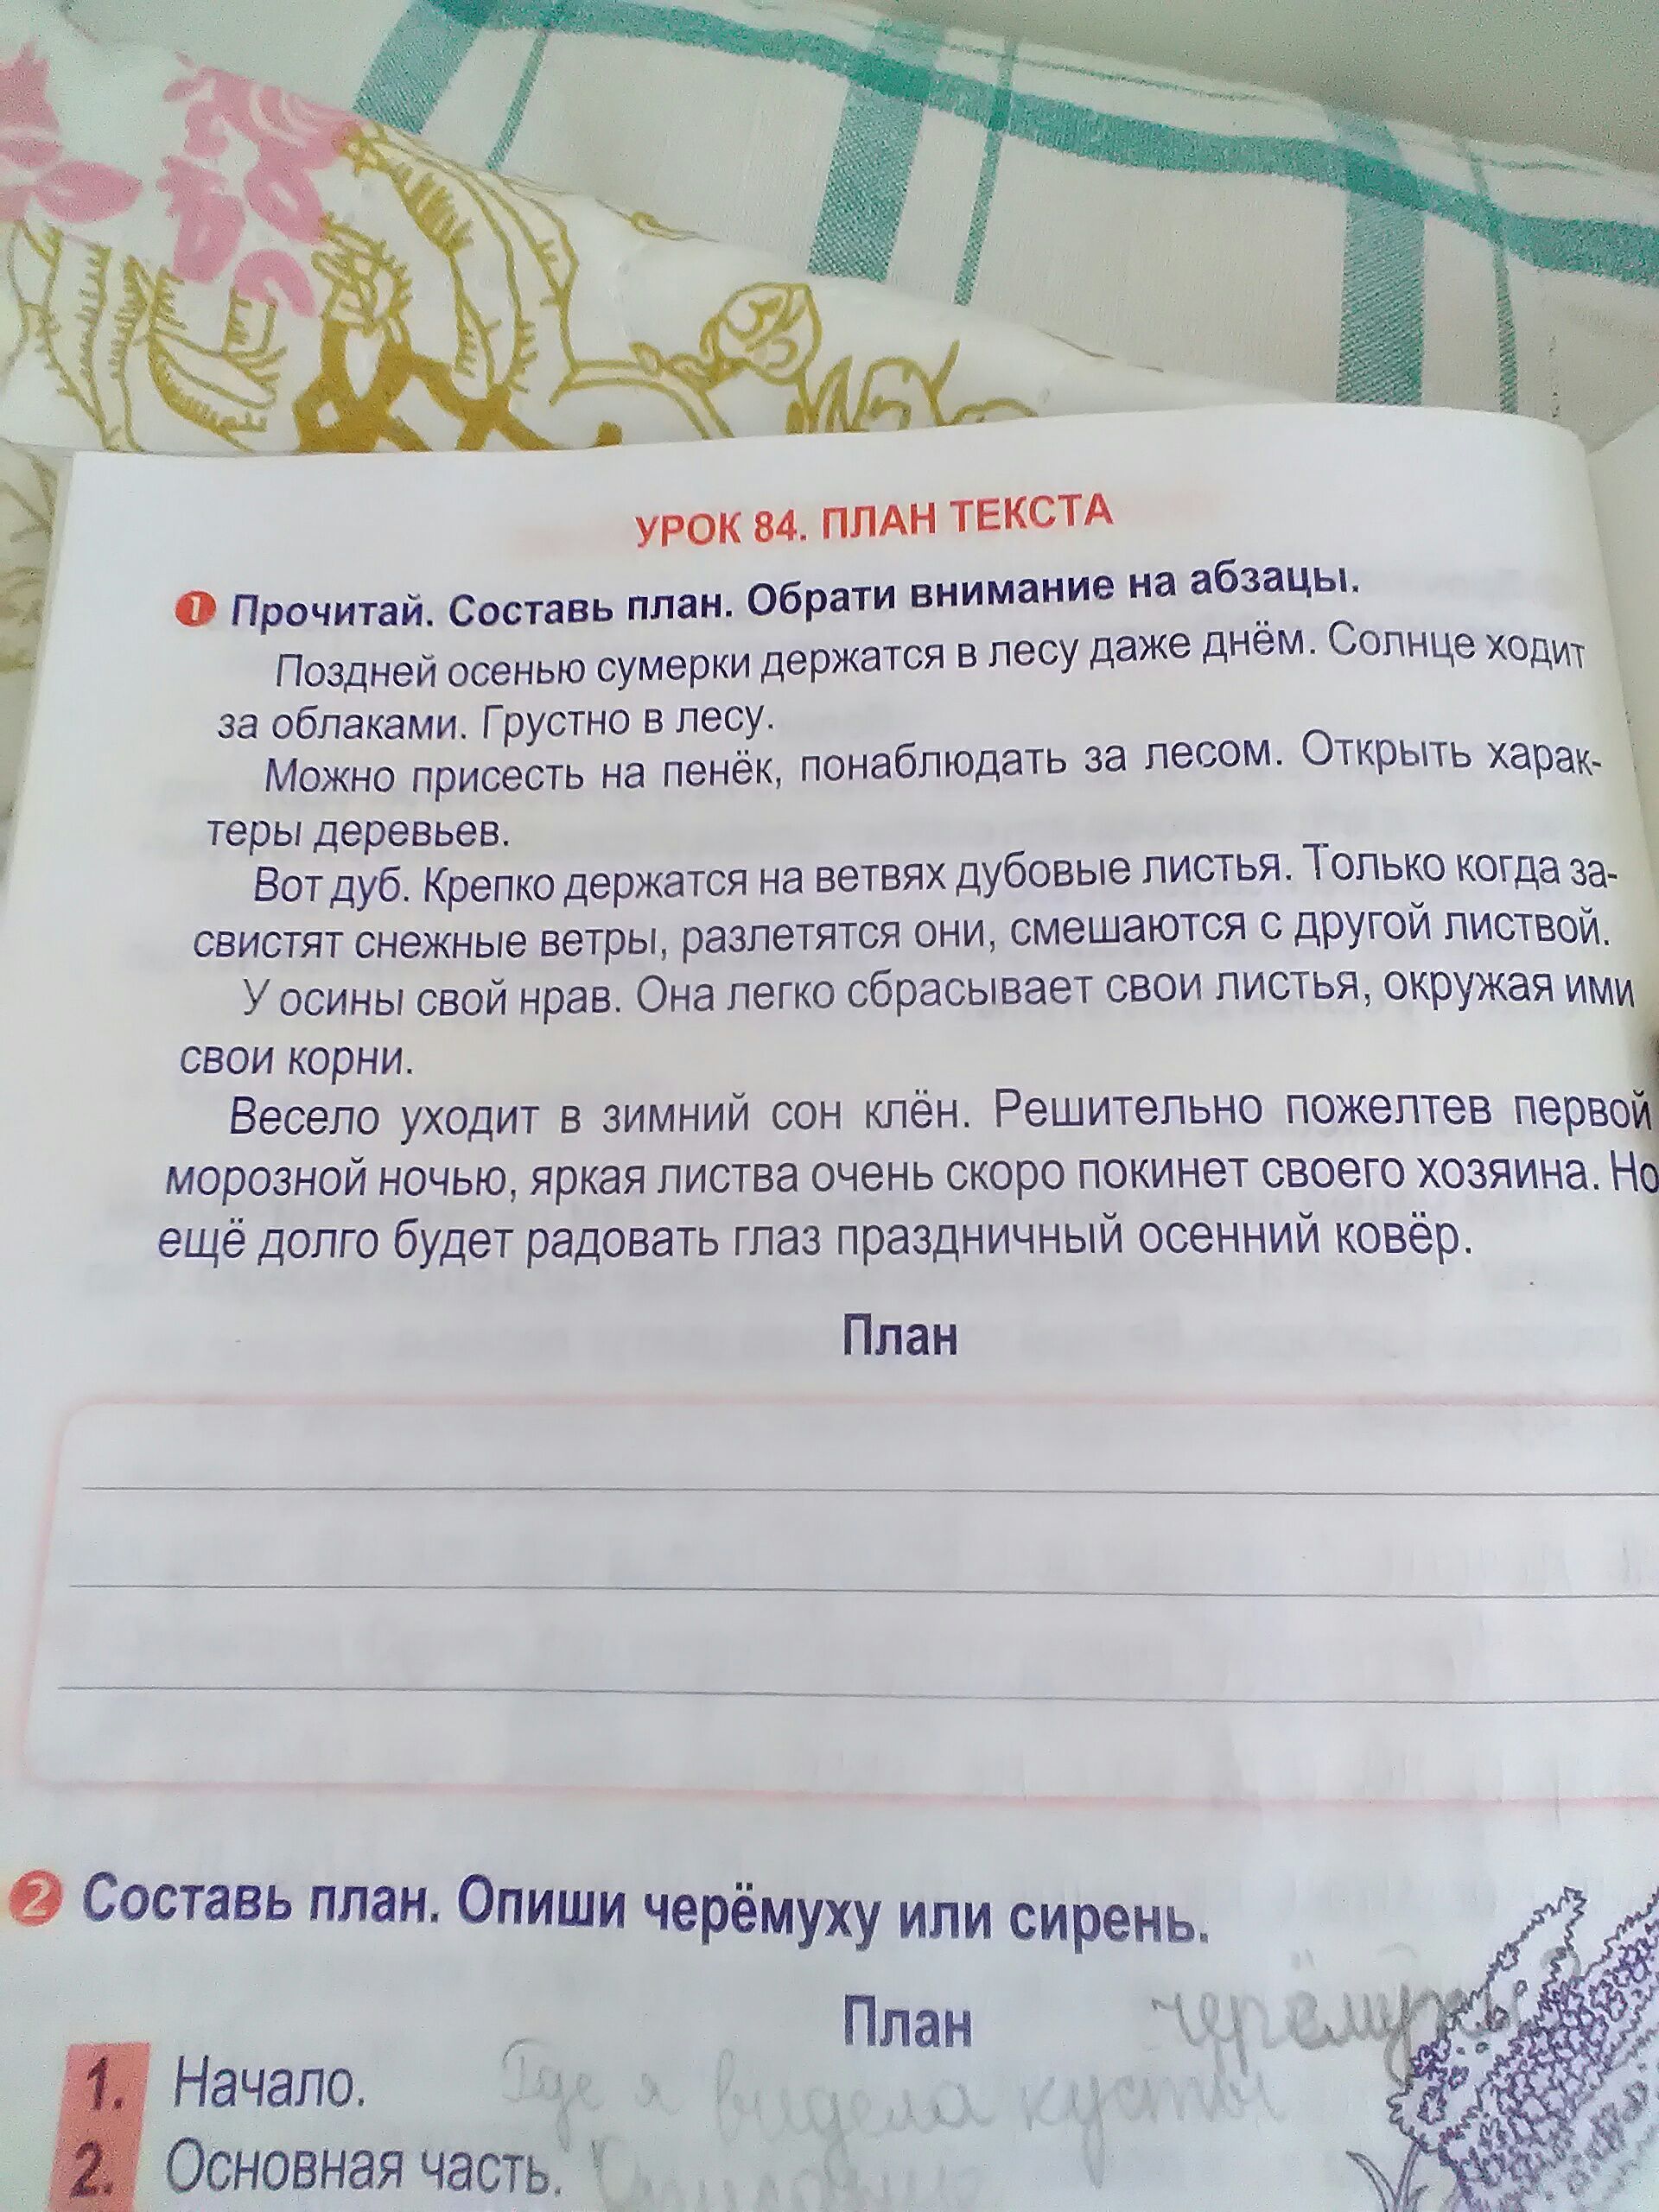 УРОК 84. ПЛАН ТЕКСТА
1 Прочитай. Составь план. Обрати внимание на абзацы.
Поздней осенью сумерки держатся в лесу даже днём. Солнце ходит
за облаками. Грустно в лесу.
Можно присесть на пенёк, понаблюдать за лесом. Открыть харак-
теры деревьев.
Вот дуб. Крепко держатся на ветвях дубовые листья. Только когда за-
свистят снежные ветры, разлетятся они, смешаются с другой листвой.
У осины свой нрав. Она легко сбрасывает свои листья, окружая ими
свои корни.
Весело уходит в зимний сон клён. Решительно пожелтев первой
морозной ночью, яркая листва очень скоро покинет своего хозяина. Но
ещё долго будет радовать глаз праздничный осенний ковёр.
План
2 Составь план. Опиши черёмуху или сирень.
План
черёмухи
1. Начало. Где я видела кусты
2. Основная часть.